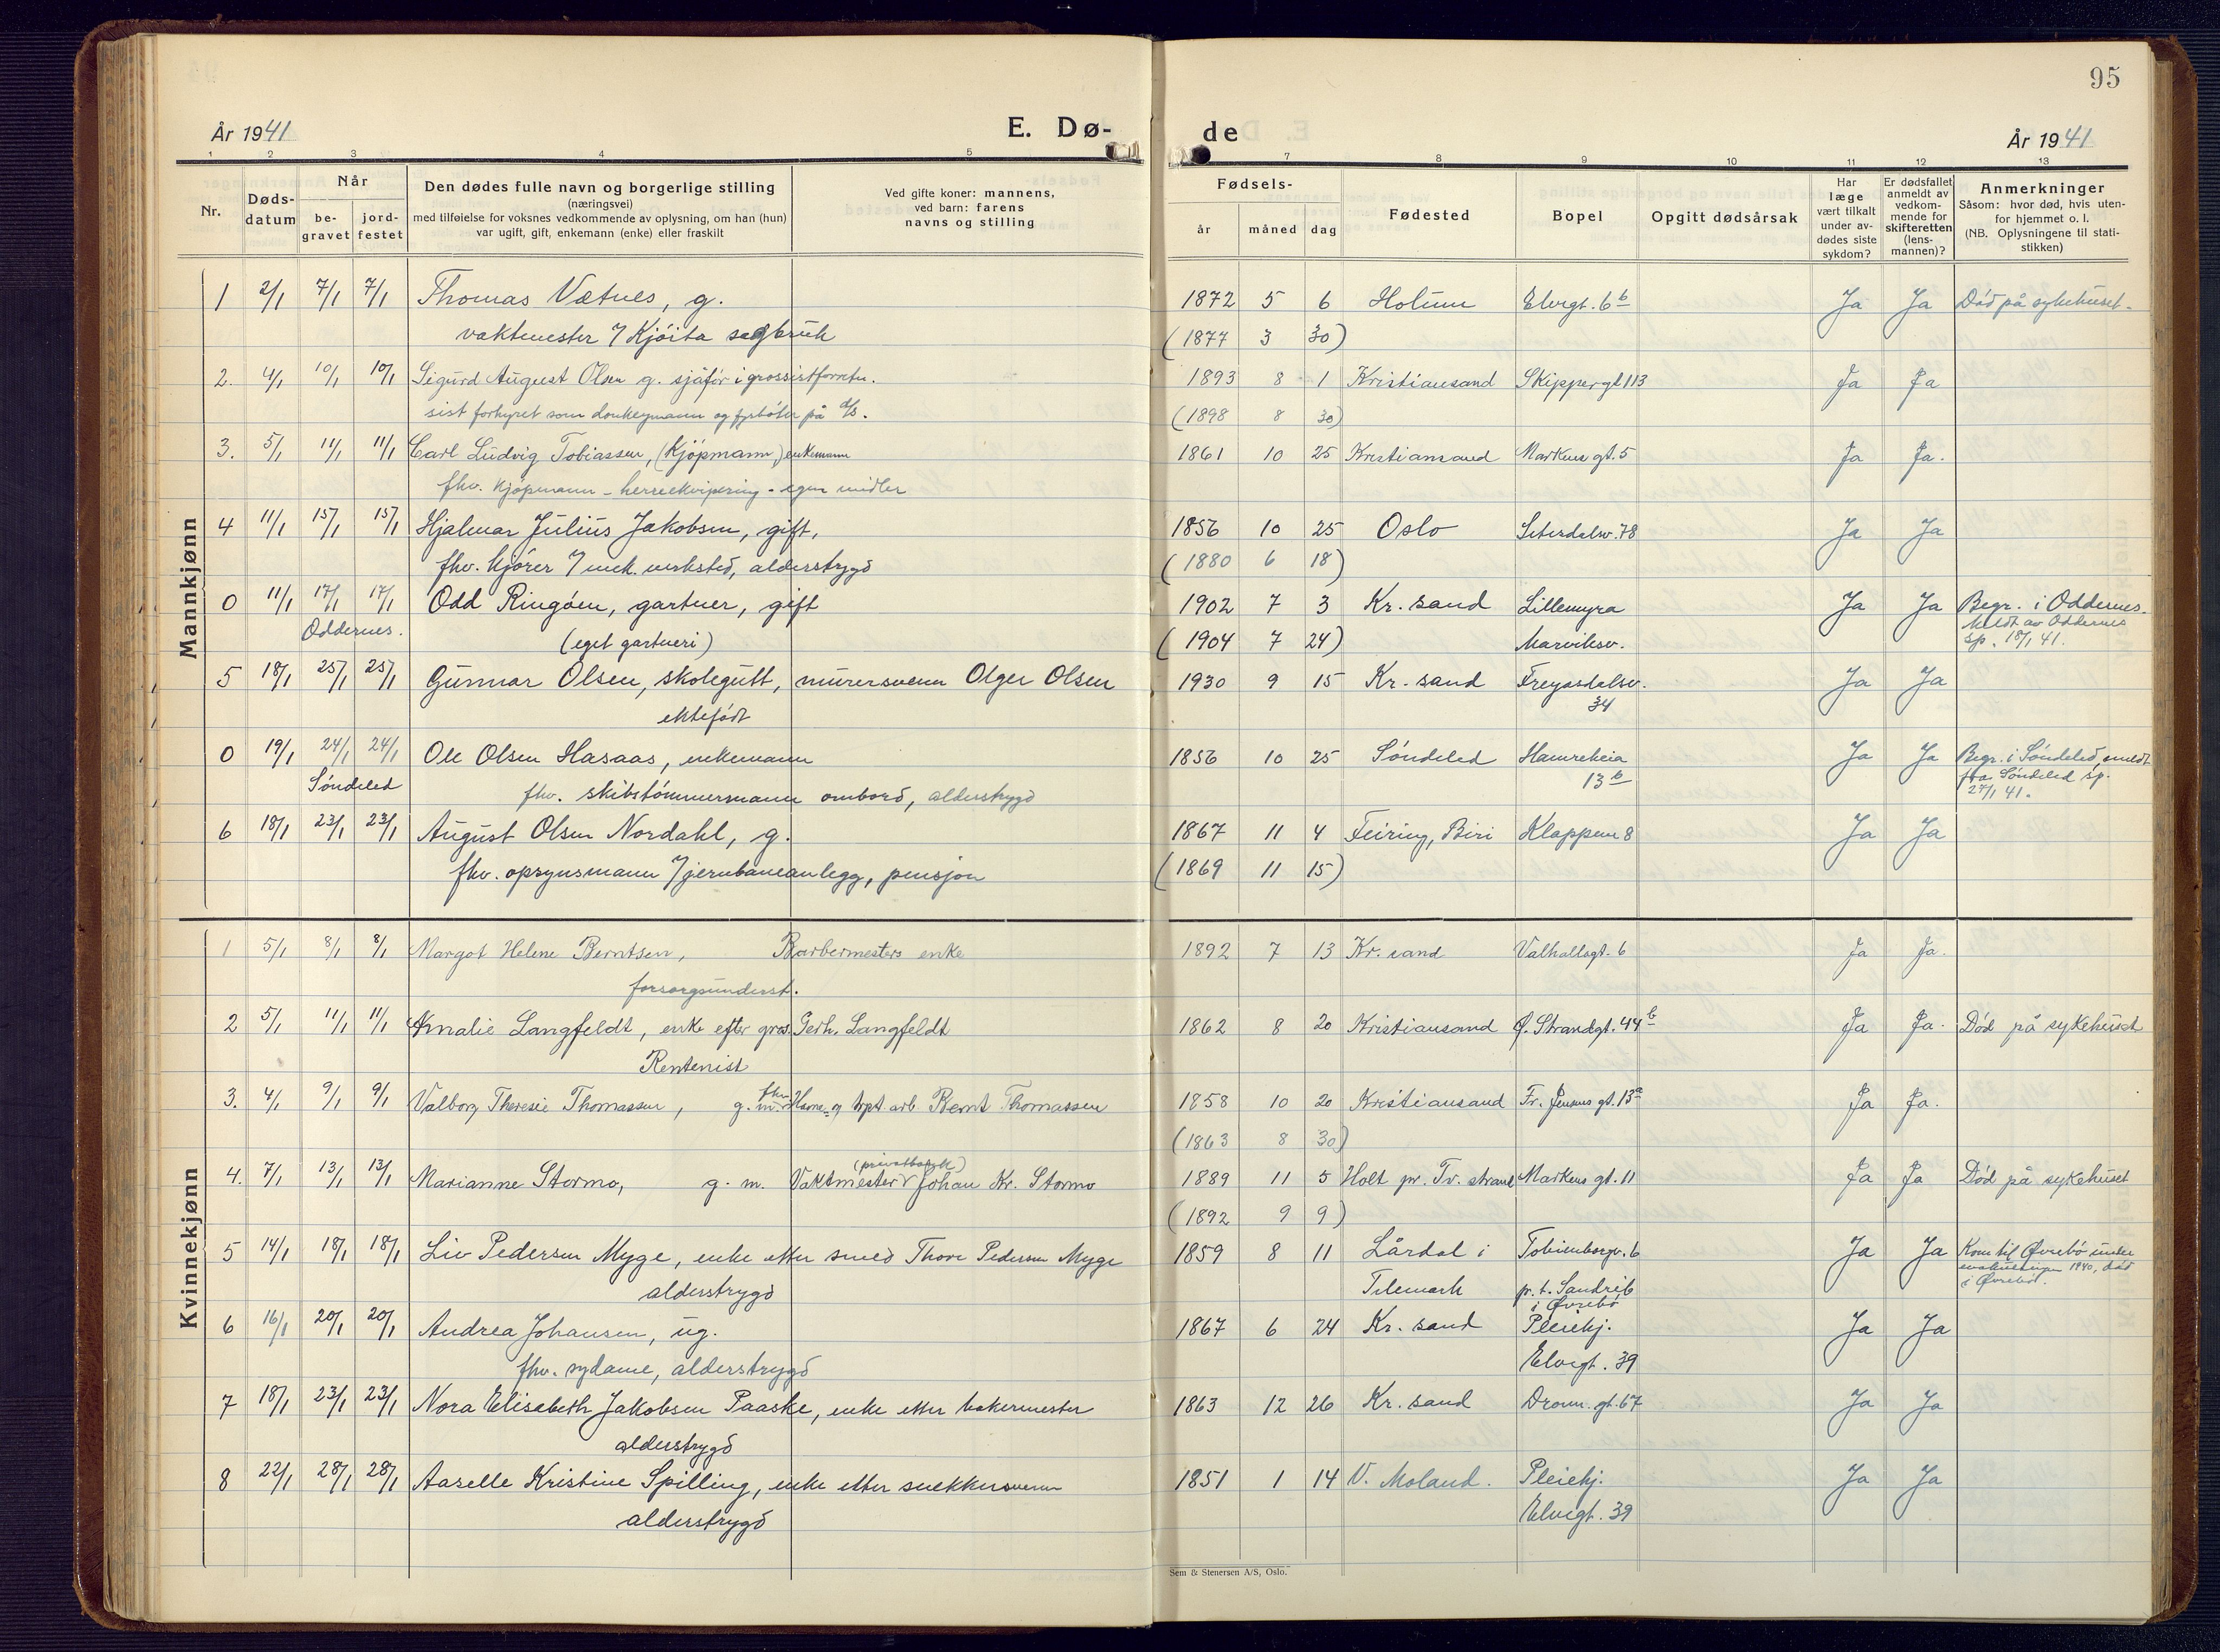 95
År 1941
E. Dø-
de
År 1941
1 2 3 4 5 7 8 9 10 11 12 13
Nr.
Dødsdatum
Når
begravet
jordfestet
Den dødes fulle navn og borgerlige stilling
(næringsvei)
med tilføielse for voksnes vedkommende av oplysning, om han (hun)
var ugift, gift, enkemann (enke) eller fraskilt
Ved gifte koner: mannens,
ved barn: farens
navns og stilling
Fødsels-
år måned dag
Fødested
Bopel
Opgitt dødsårsak
Har
læge
vært tilkalt
under av-
dødes siste
sykdom?
Er dødsfallet
anmeldt av
vedkom-
mende for
skifteretten
(lens-
mannen)?
Anmerkninger
Såsom: hvor død, hvis uten-
for hjemmet o. l.
(NB. Oplysningene til stati-
stikken)
Mannkjønn
1 2/1 7/1 7/1 Thomas Vatnes, g. 1872 5 6 Holum Elvegt. 6b Ja Ja Død på sykehuset.
vaktmester / Kjöita sagbruk (1877 3 30)
2. 4/1 10/1 10/1 Sigurd August Olsen g. sjåför i grossistforretn. 1893 8 1 Kristiansand Skippergt 113 Ja Ja
sist forhyret som donkeymann og fyrböter på d/s. (1898 8 30)
3. 5/1 11/1 11/1 Carl Ludvig Tobiassen, (Kjöpmann,) enkemann 1861 10 25 Kristiansand Markens gt. 5 Ja Ja.
fhv. kjöpmann - herreekvipering - egen midler
4 11/1 15/1 15/1 Hjalmar Julius Jakobsen, gift, 1856 10 25 Oslo Seterdalsv. 78 Ja Ja
fhv. kjörer / mek. verksted, alderstrygd (1880 6 18)
0 11/1 17/1 17/1 Odd Ringöen, gartner, gift 1902 7 3 Kr. sand Lillemyra Ja Ja Begr. i Oddernes.
Oddernes. (eget gartneri) (1904 7 24) Marviksv. meldt av Oddernes
sp. 18/1 41.
5 18/1 25/1 25/1 Gunnar Olsen, skolegutt, murersvenn Olger Olsen 1930 9 15 Kr. sand Freyasdalsv. Ja Ja
ektefödt 34
0 19/1 24/1 24/1 Ole Olsen Hasaas, enkemann 1856 10 25 Söndeled Hamreheia Ja Ja Begr. i Söndeled, meldt
Söndeled fhv. skibstömmermann ombord, alderstrygd 13b fra Söndeled sp.
27/1 41.
6 18/1 23/1 23/1 August Olsen Nordahl, g. 1867 11 4 Feiring, Biri Klappen 8 Ja Ja
fhv. opsynsmann / jernbaneanlegg, pensjon (1869 11 15)
Kvinnekjønn
1 5/1 8/1 8/1 Margot Helene Berntsen, Barbermesters enke 1892 7 13 Kr. sand Valhallagt. 6 Ja Ja.
forsorgsunderst.
2 5/1 11/1 11/1 Amalie Langfeldt, enke efter gros. Gerh. Langfeldt 1862 8 20 Kristiansand Ø. Strandgt. 44b Ja Ja. Död på sykehuset
Rentenist
3. 4/1 9/1 9/1 Valborg Theresie Thomassen, g. m. fhv. Havne- og tripst arb Bernt Thomassen 1858 10 20 Kristiansand Fr. Jensens gt. 13a Ja Ja.
(1863 8 30)
4. 7/1 13/1 13/1 Marianne Stormo, g. m. Vaktmester (privatbank) Johan Kr. Stormo 1889 11 5 Holt pr. Tv. strand Markens gt. 11 Ja Ja Död på sykehuset
(1892 9 9)
5 14/1 18/1 18/1 Liv Pedersen Myge, enke etter smed Thore Pedersen Myge 1859 8 11 Lårdal i Tobienborgv. 6 Ja Ja Kom til Øvrebö under
alderstrygd Telemark p. t. Sandrib evakueringen 1940, död
i Øvrebö i Øvrebö.
6 16/1 20/1 20/1 Andrea Johansen, ug. 1867 6 24 Kr. sand Pleiehj. Ja Ja
fhv. sydame, alderstrygd Elvegt. 39
7 18/1 23/1 23/1 Nora Elisabeth Jakobsen Paaske, enke etter bakermester 1863 12 26 Kr. sand Dronn. gt. 67 Ja Ja
alderstrygd
8 22/1 28/1 28/1 Aaselle Kristine Spilling, enke etter snekkersvenn 1851 1 14 V. Moland. Pleiehj. Ja Ja
alderstrygd Elvegt. 39
Sem & Stenersen A/S, Oslo.